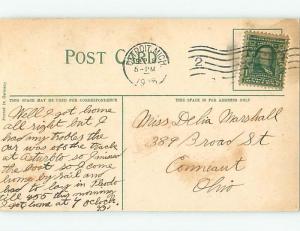 POST CARD
DETROIT, MICH.
5-PM
2
THIS SPACE MAY BE USED FOR CORRESPONDENCE
THIS SPACE IS FOR ADDRESS ONLY
Printed in Germany
Well I got home
all right but I
had my trobles the
car was off the track
at so I
the boat so I come
home by rail and
had to lay in
till 455 this morning
I got home at 7 oclock
Miss Delia Marshall
389 Broad St
Conneaut
Ohio